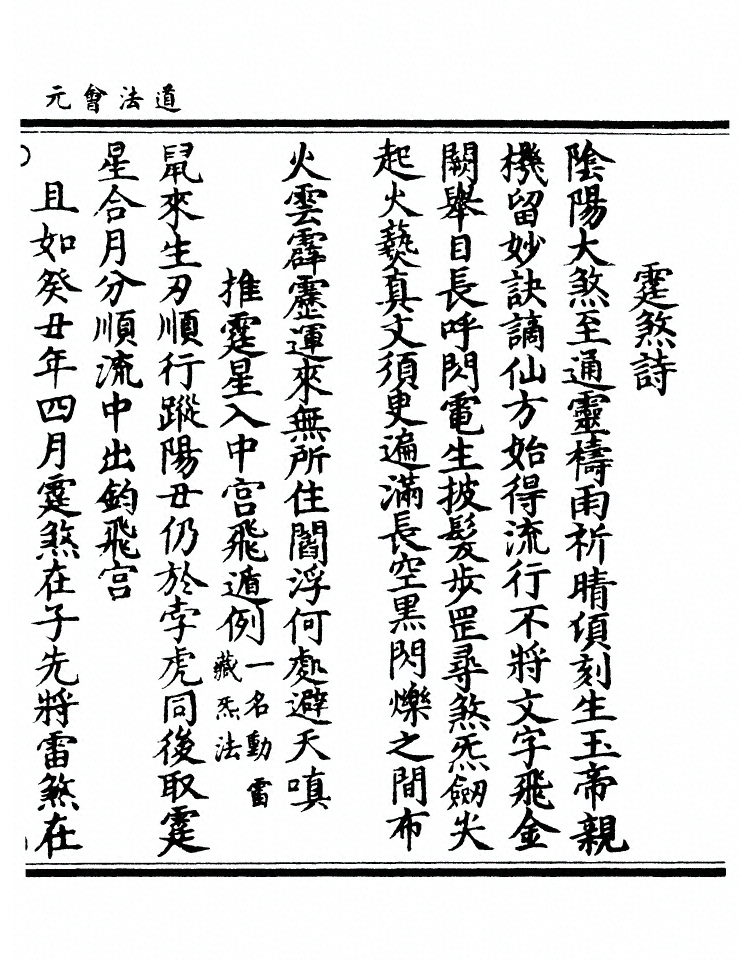 道法會元
霆煞詩
陰陽大煞至通靈禱雨祈晴傾刻生玉帝親
機留妙訣謫仙方始得流行不將文字飛金
闕舉目長呼閃電生披髮步罡尋煞炁劒尖
起火爇真文須更遍滿長空黑閃爍之間布
火雲霹靂運來無所住閻浮何處避天嗔
推霆星入中宫飛遁例一名動雷
藏炁法
鼠來生刃順行蹤陽丑仍於孛虎同後取霆
星合月分順流中出鈞飛宫
且如癸丑年四月霆煞在子先將雷煞在